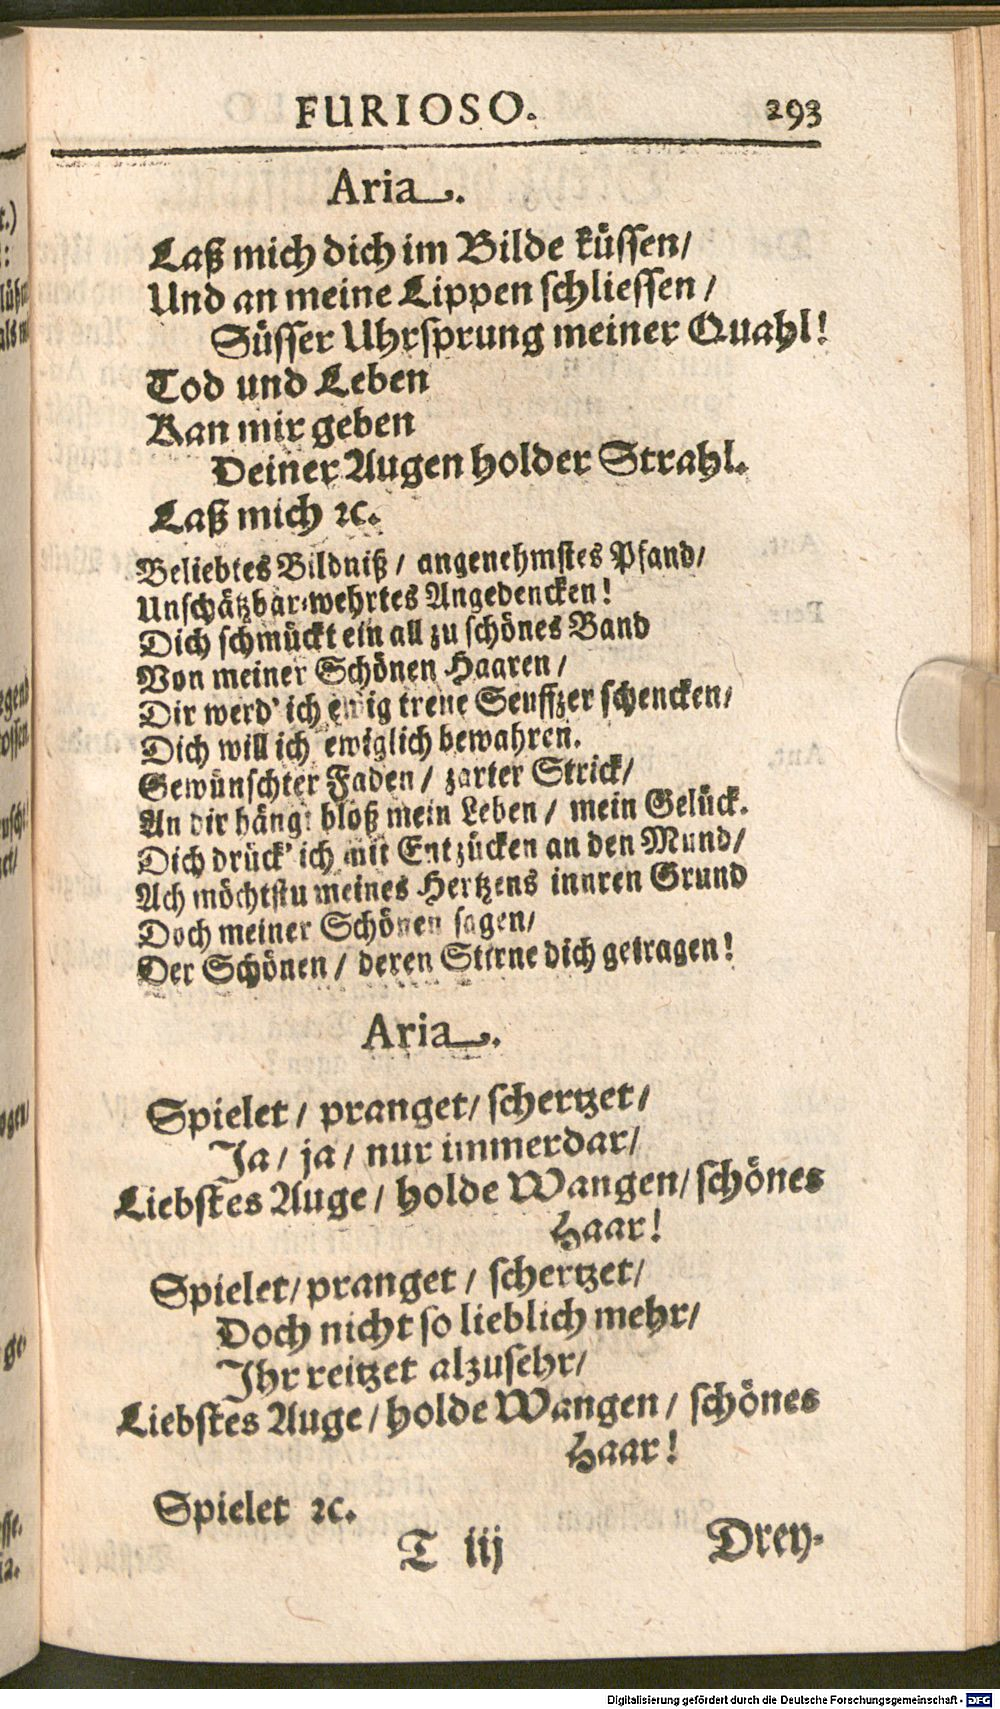 FURIOSO. 293
Aria.
Laß mich dich im Bilde küssen/
Und an meine Lippen schliessen /
Süsser Uhrsprung meiner Quahl!
Tod und Leben
Kan mir geben
Deiner Augen holder Strahl.
Laß mich ꝛc.
Beliebtes Bildniß / angenehmstes Pfand/
Unschätzbar-wehrtes Angedencken!
Dich schmückt ein all zu schönes Band
Von meiner Schönen Haaren /
Dir werd' ich ewig treue Seuffzer schencken/
Dich will ich ewiglich bewahren.
Gewünschter Faden / zarter Strick/
An dir hängt bloß mein Leben / mein Gelück.
Dich drück' ich mit Entzücken an den Mund/
Ach möchtstu meines Hertzens innren Grund
Doch meiner Schönen sagen/
Der Schönen / deren Stirne dich getragen!
Aria.
Spielet / pranget/ schertzet/
Ja / ja / nur immerdar/
Liebstes Auge / holde Wangen/ schönes
Haar!
Spielet/ pranget / schertzet/
Doch nicht so lieblich mehr/
Ihr reitzet alzusehr/
Liebstes Auge / holde Wangen / schönes
Haar!
Spielet ꝛc.
T iij Drey-
Digitalisierung gefördert durch die Deutsche Forschungsgemeinschaft - DFG